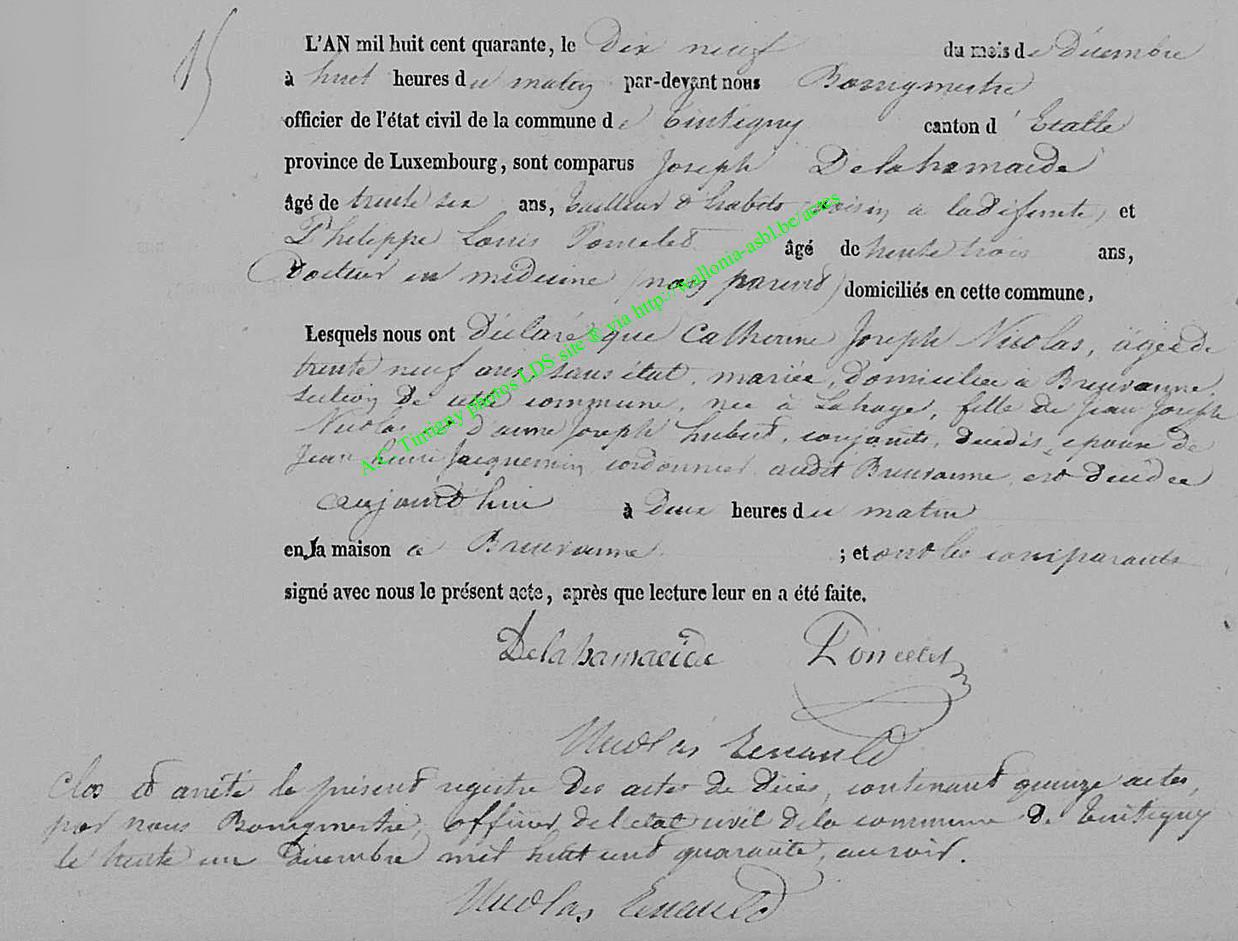 15
L'AN mil huit cent quarante, le Dix neuf du mois de Décembre
à huit heures du matin par-devant nous Bourgmestre
officier de l'état civil de la commune de Tintigny canton d'Etalle
province de Luxembourg, sont comparus Joseph Delahamaide
âgé de trente six ans, tailleur d'habits voisin à la défunte, et
Philippe Louis Poncelet âgé de trente trois ans,
Docteur en médecine, non parent, domiciliés en cette commune,
Lesquels nous ont Déclaré que Catherine Joseph Nicolas, âgée de
trente neuf ans, sans état, mariée, domiciliée à Breuvanne,
section de cette commune, née à Lahage, fille de Jean Joseph
Nicolas et D'anne Joseph hubert, conjoints, décédés, épouse de
Jean henri Jacquemin, cordonnier audit Breuvanne, est décédée
aujourd'hui à Deux heures du matin
en la maison à Breuvanne ; et ont les comparants
signé avec nous le présent acte, après que lecture leur en a été faite.
Delahamaide Poncelet
Nicolas Enauld
Clos et arrêté le présent registre des actes de Décès, contenant quinze actes,
par nous Bourgmestre, officier de l'état civil de la commune de Tintigny
le trente un Décembre mil huit cent quarante, au soir.
Nicolas Enauld
A.C. Tintigny photos LDS site ® via http://wallonia-asbl.be/actes